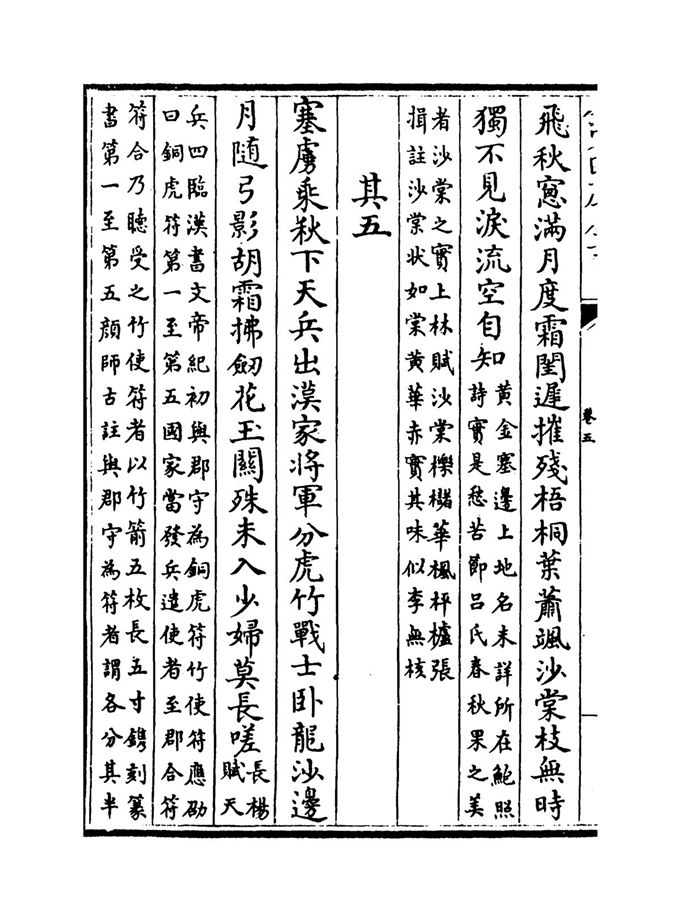 飛秋窻滿月度霜閨遲摧殘梧桐葉蕭颯沙棠枝無時
獨不見淚流空自知
黃金塞邊上地名未詳所在鮑照
詩實是愁苦節呂氏春秋果之美
者沙棠之實上林賦沙棠櫟櫧華楓枰櫨張
揖註沙棠状如棠黃華赤實其味似李無核
其五
塞虜乘秋下天兵出漢家將軍分虎竹戰士卧龍沙邊
月随弓影胡霜拂劒花玉關殊未入少婦莫長嗟
長楊
賦天
兵四臨漢書文帝紀初與郡守為銅虎符竹使符應劭
曰銅虎符第一至第五國家當發兵遣使者至郡合符
符合乃聽受之竹使符者以竹箭五枚長五寸鐫刻篆
書第一至第五顔師古註與郡守為符者謂各分其半
卷五